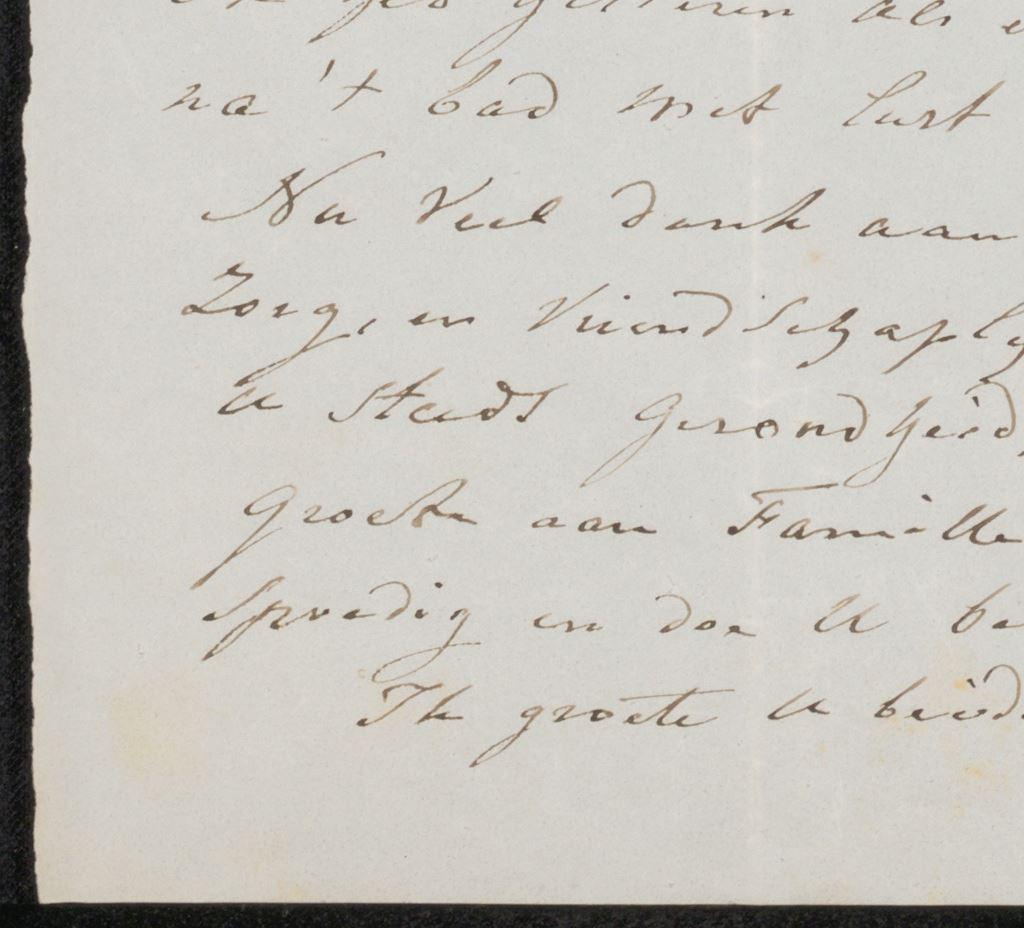 na 't bad met lust
Nu Veel dank aan
Zorg, en Vriendschaply
u steeds Gezondheid,
groeten aan Famille
spoedig en doe U be
Ik groete U beide